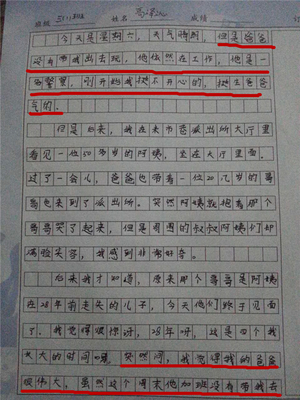 班级 三(1)班 姓名 成绩
今天是星期六，天气晴朗，但是爸爸
没有带我出去玩，他依然在工作，他是一
名警察，刚开始我挺不开心的，挺生爸爸
气的。
但是后来，我在未央宫派出所大厅里
看见一位50多岁的阿姨，坐在大厅里面。
过了一会儿，爸爸也带着一位20几岁的哥
哥也来到了派出所。突然阿姨就抱着那个
哥哥哭了起来，但是周围的叔叔阿姨们却
满脸笑容，我感到非常好奇。
后来我才知道，原来那个哥哥是阿姨
在28年前走失的儿子，今天他们终于见面
了。我觉得很惊讶，28年呀，这是四个我
大大的时间呢。突然间，我觉得我的爸爸
很伟大，虽然这个周末他加班没有带我去